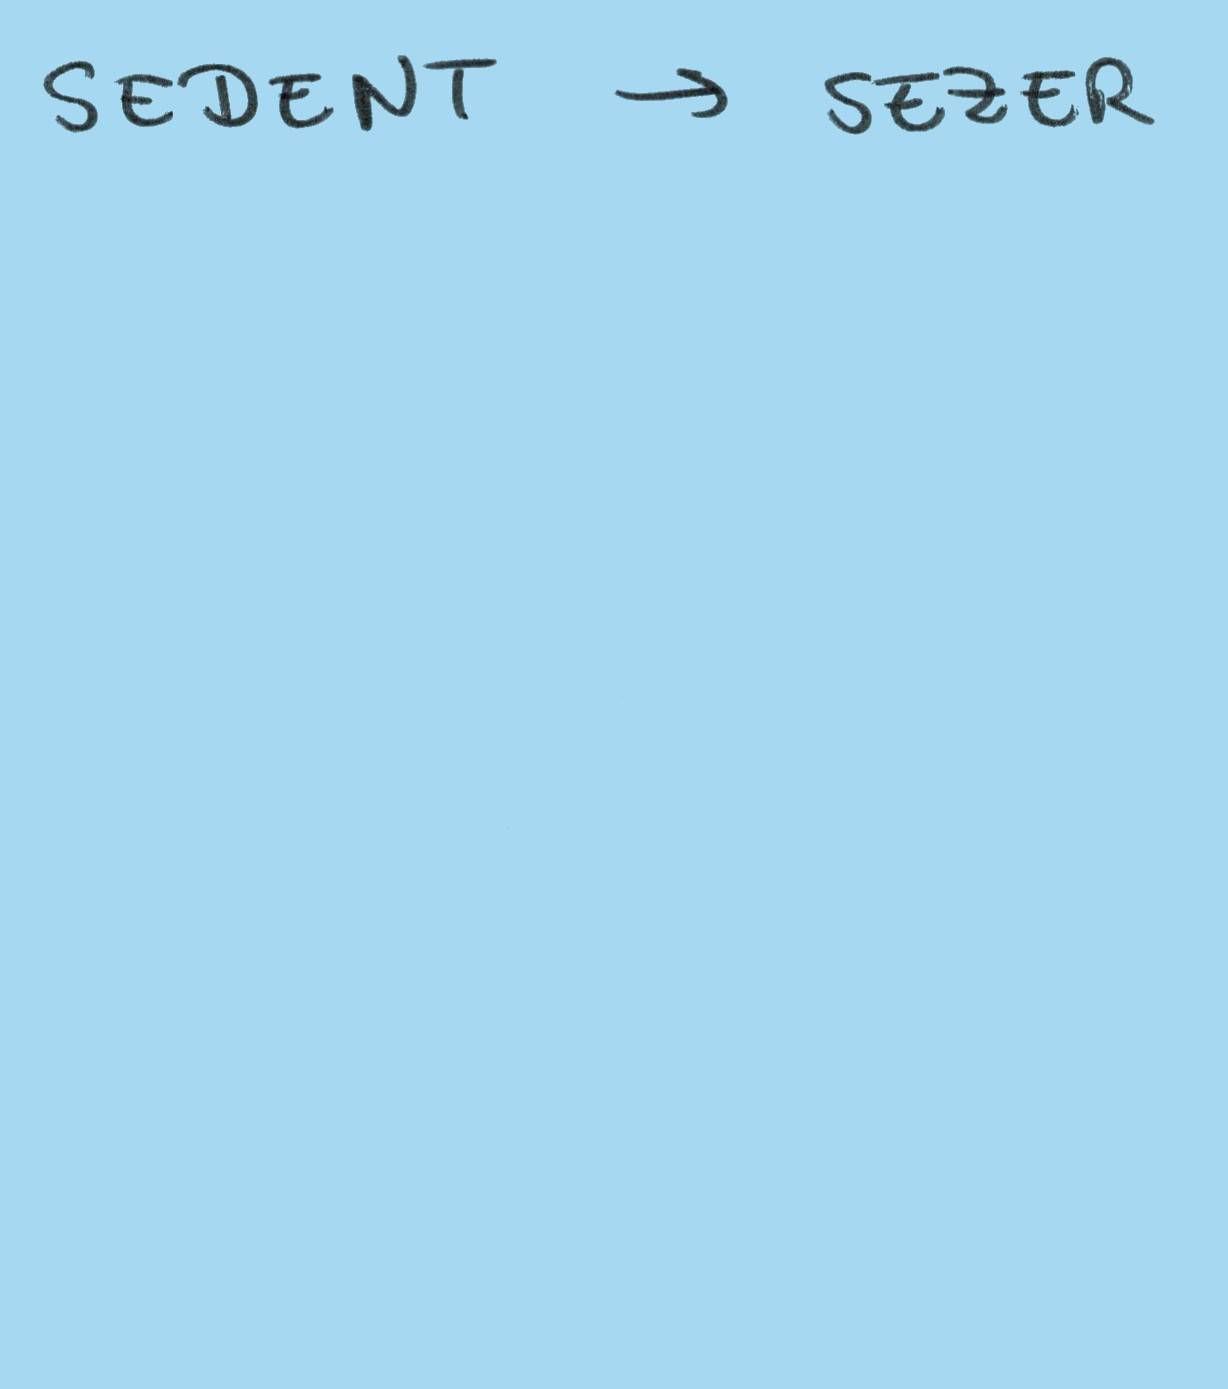 SEDENT → SEZER